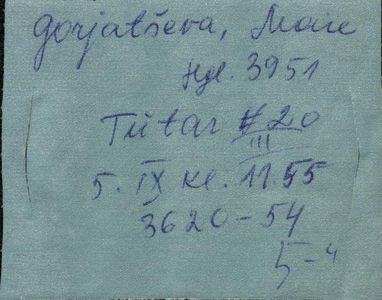 Gorjatševa, Maie
Hgl. 3951
Tütar # 20
III
5. IX kl. 11.55
3620-54
5-4